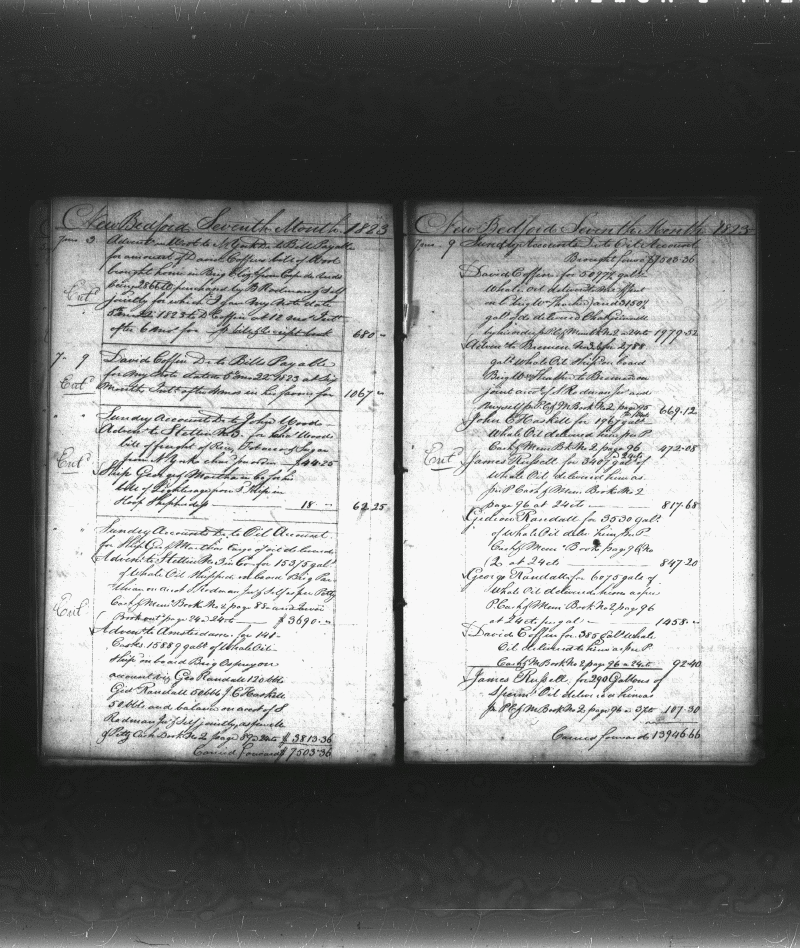 New Bedford Seventh Month 1823
3 Adventure West to N York Dr to Bills Payable
for amount of David Coffins bill of Wood
brought home in Brig Eliza from Cape de Verds
being purchased by B Rodman & Self
jointly for which I gave My Note date
1823 to D Coffin 12 mos Intt
after 6 Mos for 680 -
Entd
7 - 9 David Coffin Dr to Bills Payable
for My Note dated 5 mo 22 1823 at Six
Months Intt after in his favour for 1067 -
Entd
" " Sundry Accounts Dr to John Wood
Advent to Stettin No 3. for Woods
bill of freight of Rice, Tobacco & Sugar
from N York $44.25
Entd
Ship George & Martha in
bill of Lighterage from Ship in
Sloop 18 - 62.25
" " Sundry Accounts Dr to Oil Account
for Ship Geo & Marthas Cargo of oil delivered
Advent to Stettin No 3 in Co for 15375 gall
of Whale Oil Shipped on board Brig
on acct S Rodman Jr & Self as per Petty
Cash & Mem Book No 2 page 85
page 24 a 24cts $3690 -
Entd
Advent to Amsterdam for 140
Casks 15889 gall of Whale Oil
Ship on board Brig
account Geo Randall 120 bbls
Geo Randall 50 bbls J C Haskell
50 bbls and balance on acct of S
Rodman Jr & Self jointly, as per
of Petty Cash Book No 2 page 89 a 24cts $3813.36
Carried forward $7503.36
New Bedford Seventh Month 1823
7 mo. 9 Sundry Accounts Dr to Oil Account
Brought forward $7503.36
David Coffin for gall
Whale Oil delivered
on brig and 3150
gall do delivered
by him P C & Memk No 2 a 24cts 1979.52
Advent to Bremen No 3 for 2788
gall Whale Oil Ship on board
Brig to Bremen on
joint acct of S Rodman Jr and
Myself per P C & M Book No 2 page 95
669.12
John C Haskell for 1967 gall
Whale Oil delivered him per P
Cash & Mem Bk No 2, page 96 472.08
a 24cts
Entd
James Russell for 3407 gall of
Whale Oil delivered him as
per P Cash & Mem Book No 2
page 96 at 24cts 817.68
Gideon Randall for 3530 gall
of Whale Oil deld him per P
Cash & Mem Book page 96 No
2 at 24cts 847.20
George Randall for 6075 gall of
Whale Oil delivered him as per
P Cash & Mem Book No 2 page 96
at 24cts per gall 1458 -
David Coffin for 385 gall Whale
Oil delivered to him as per P
Cash & M Book No 2 page 96 a 24cts 92.40
James Russell, for 290 Gallons of
Sperm Oil delivered him as
per P C & M Book No 2, page 96 a 37cts 107.30
Carried forward 13946.66